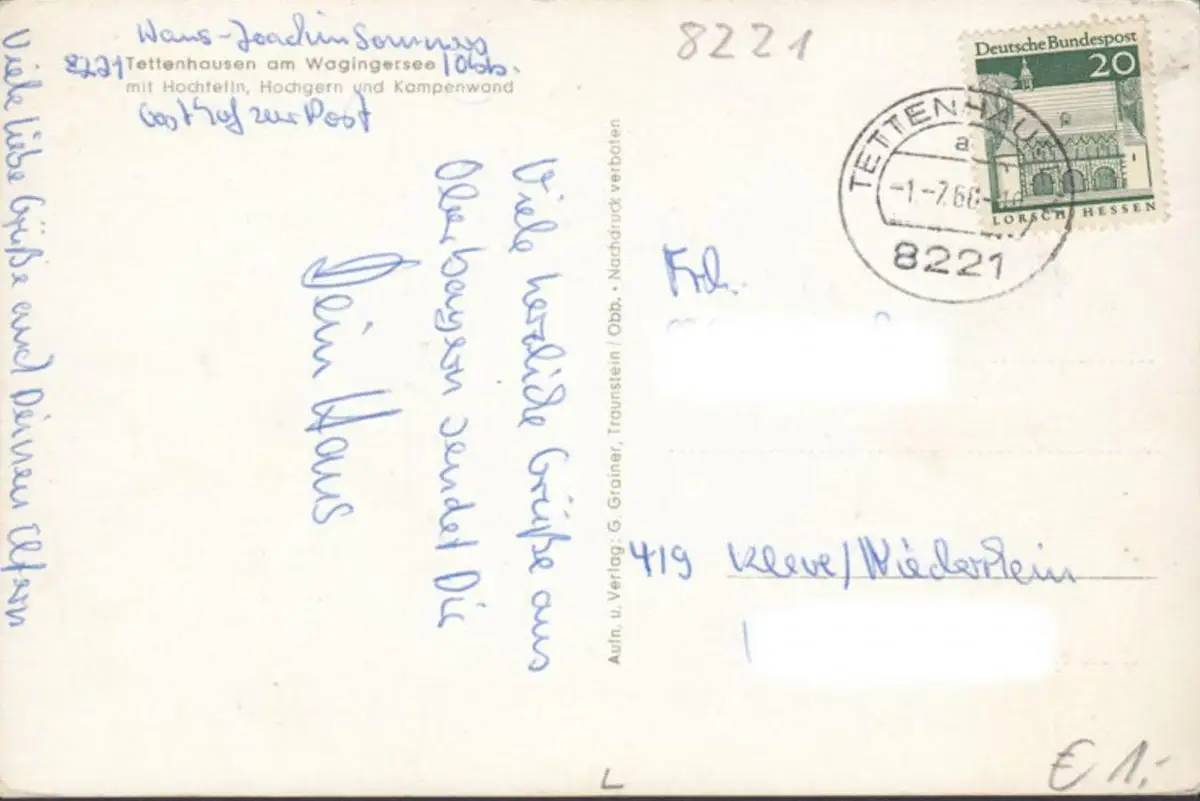 Hans-Joachim Sommers
8221 Tettenhausen am Wagingersee /Obb.
mit Hochfelln, Hochgern und Kampenwand
Gasthof zur Post
Viele herzliche Grüße aus
Oberbayern sendet Dir
Dein Hans
Viele liebe Grüße auch Deinen Eltern
Aufn. u. Verlag: G. Grainer, Traunstein / Obb. • Nachdruck verboten
8221
Deutsche Bundespost
20
LORSCH HESSEN
TETTENHAUS
a
-1.-7.68-
8221
Frl.
419 Kleve/Niederrhein
€ 1,-